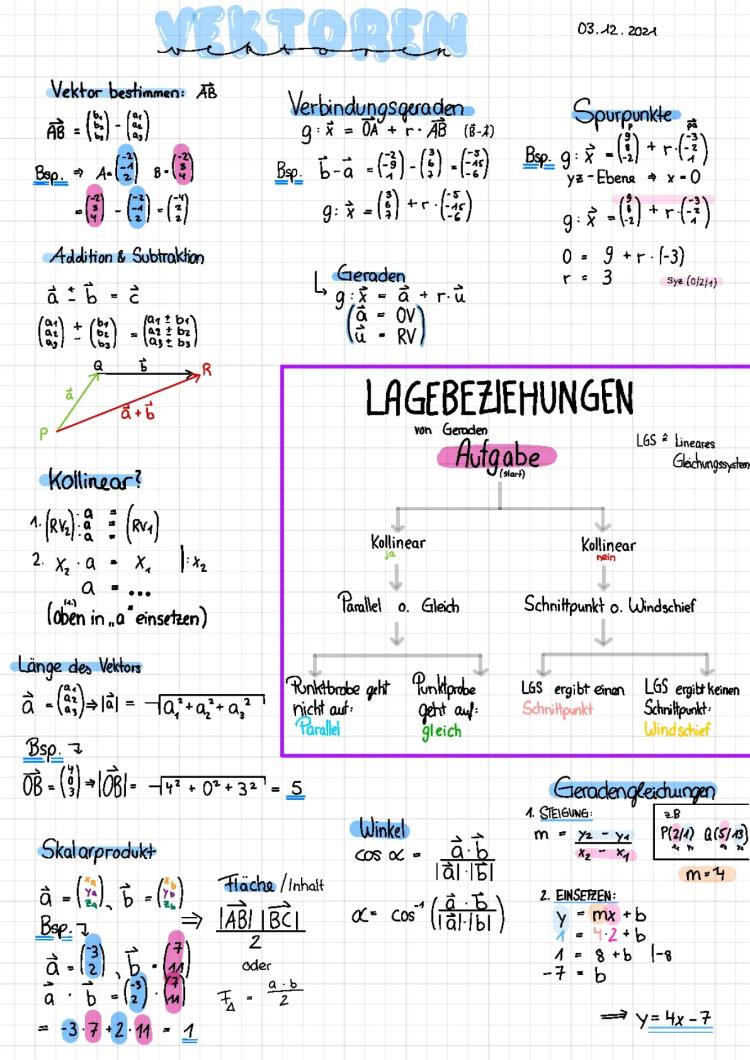 VEKTOREN
vektoren
03.12.2021
Vektor bestimmen: AB⃗
AB⃗ = (b₁ b₂ b₃) - (a₁ a₂ a₃)
Bsp. ⇒ A=(-2 -1 2) B=(-2 3 4)
=(-2 3 4) - (-2 -1 2) = (-4 2 2)
Addition & Subtraktion
a⃗ ± b⃗ = c⃗
(a₁ a₂ a₃) ± (b₁ b₂ b₃) = (a₁ ± b₁ a₂ ± b₂ a₃ ± b₃)
Q b⃗ R
a⃗
a⃗ + b⃗
P
Kollinear?
1. (RV₂) : a a a = = = (RV₁)
2. X₂ · a = X₁ |: x₂
a = ...
(oben in „a" einsetzen)
Länge des Vektors
a⃗ = (a₁ a₂ a₃) ⇒ |a⃗| = √a₁² + a₂² + a₃²
Bsp. ↴
OB⃗ = (4 0 3) ⇒ |OB⃗| = √4² + 0² + 3² = 5
Skalarprodukt
a⃗ = (xa ya za), b⃗ = (xb yb zb)
Bsp. ↴
a⃗ = (-3 2), b⃗ = (7 11)
a⃗ · b⃗ = (-3 2) · (7 11)
= -3·7 + 2·11 = 1
Verbindungsgeraden
g: x⃗ = OA⃗ + r · AB⃗ (B⃗-A⃗)
Bsp. b⃗-a⃗ = (-2 -9 1) - (3 6 7) = (-5 -15 -6)
g: x⃗ = (3 6 7) + r·(-5 -15 -6)
↳ Geraden
g: x⃗ = a⃗ + r·u⃗
(a⃗ = OV)
(u⃗ = RV)
Spurpunkte
Bsp. g: x⃗ = (9 8 -2) + r·(-3 -2 1)
yz-Ebene ⇒ x=0
g: x⃗ = (9 8 -2) + r·(-3 -2 1)
0 = 9 + r·(-3)
r = 3 Syz (0/2/1)
LAGEBEZIEHUNGEN
von Geraden
LGS ≙ Lineares
Gleichungssystem
Aufgabe
(start)
Kollinear
ja
Kollinear
nein
Parallel o. Gleich
Schnittpunkt o. Windschief
Punktbrobe geht
nicht auf:
Parallel
Punktprobe
geht auf:
gleich
LGS ergibt einen
Schnittpunkt
LGS ergibt keinen
Schnittpunkt:
Windschief
Fläche / Inhalt
⇒ |AB| |BC| / 2
oder
F△ = a·b / 2
Winkel
cos α = a⃗·b⃗ / |a⃗|·|b⃗|
α = cos⁻¹ (a⃗·b⃗ / |a⃗|·|b⃗|)
Geradengleichungen
1. STEIGUNG:
m = y₂ - y₁ / x₂ - x₁
z.B
P(2/1) Q(5/13)
x₁ y₁ x₂ y₂
m=4
2. EINSETZEN:
y = mx + b
1 = 4·2 + b
1 = 8 + b |-8
-7 = b
⇒ y = 4x - 7